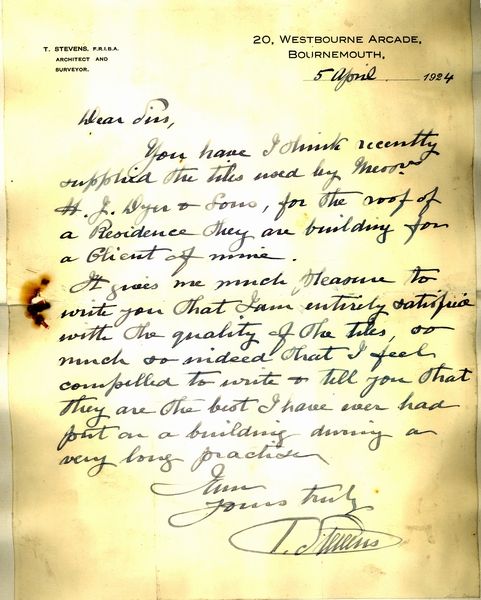 T. STEVENS. F.R.I.B.A.
ARCHITECT AND
SURVEYOR.
20, WESTBOURNE ARCADE,
BOURNEMOUTH,
5 April 1924
Dear Sirs,
You have I think recently
supplied the tiles used by Messrs.
H. J. Dyer & Sons, for the roof of
a Residence they are building for
a Client of mine.
It gives me much pleasure to
write you that I am entirely satisfied
with the quality of the tiles, so
much so indeed that I feel
compelled to write & tell you that
they are the best I have ever had
put on a building during a
very long practice
I am
yours truly
T. Stevens